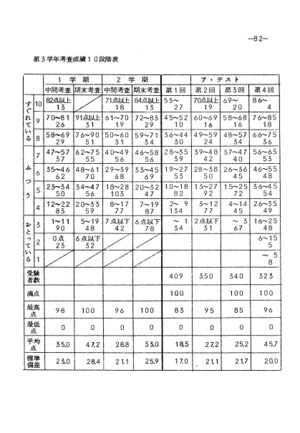 —82—
第3学年考査成績10段階表
1 学期 2 学期 ア・テスト
中間考査 期末考査 中間考査 期末考査 第1回 第2回 第3回 第4回
すぐれている ふつう おとっている
10 82点以上 71点以上 84点以上 53~ 70点以上 69~ 86~
13 18 13 27 19 20 4
9 70~81 91点以上 61~70 72~83 45~52 60~69 58~68 76~85
26 31 29 31 10 16 16 18
8 58~69 76~90 50~60 59~71 36~44 49~59 48~57 66~75
29 51 31 34 30 24 34 36
7 47~57 62~75 40~49 46~58 28~35 39~48 38~47 56~65
37 55 56 56 39 42 40 53
6 35~46 48~61 29~39 33~45 19~27 28~38 26~36 46~55
62 70 68 67 53 50 45 48
5 23~34 34~47 18~28 20~32 10~18 13~27 15~25 36~45
50 56 103 47 92 92 72 54
4 12~22 20~33 8~17 7~19 2~9 3~12 4~14 26~35
83 59 77 87 134 77 45 49
3 1~11 5~19 7点以下 6点以下 ~1 2点以下 ~3 16~25
90 48 42 78 34 31 67 48
2 0点 6点以下 6~15
23 32 5
1 ~5
8
受験者数 409 350 340 323
満点 100 100 100
最高点 98 100 96 100 83 95 85 96
最低点 0 0 0 0 0 0 0 0
平均点 35.0 47.2 28.8 33.0 18.5 27.2 25.2 45.7
標準偏差 23.0 28.4 21.1 25.9 17.0 21.1 21.7 20.0